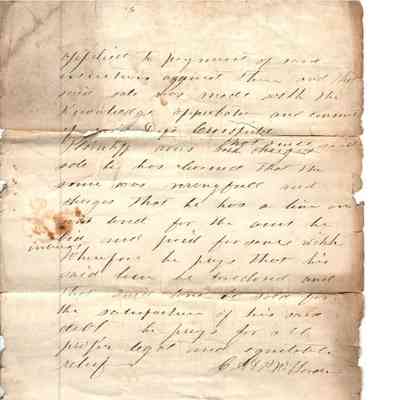 applied to payment of said
executions against them and that
said sale was made with the
knowledge, approbation and consent
of said Defts
Plantiff avers that since said
sale he has learned that the
same was wrongfull and
charges that he has a lien on
said land for the amt he
bid and paid for same with
interest
Wherefore he prays that his
said lien be enforced and
that said land be sold for
the satisfaction of his said
debt he prays for all
proper legal and equitable
relief